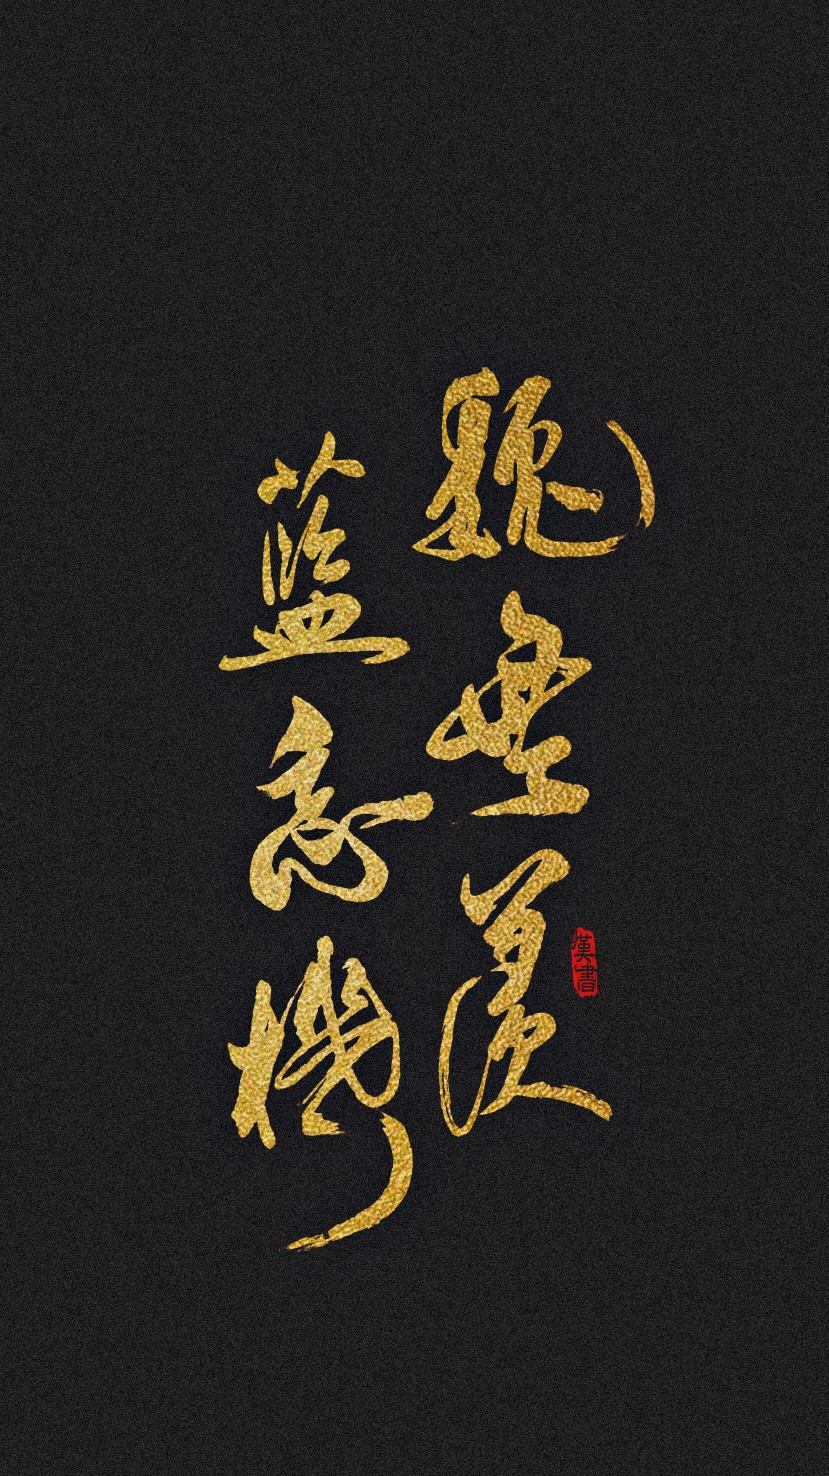 魏無羨
藍忘機
漢書